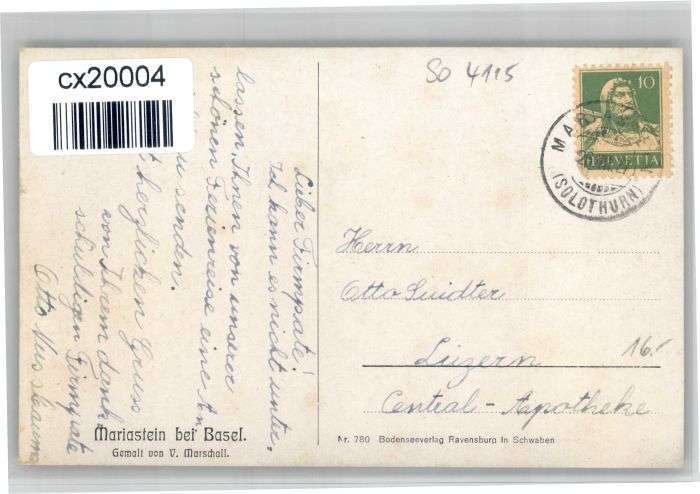 cx20004
SO 4115
10
HELVETIA
MARI
(SOLOTHURN)
Lieber Firmpate!
Ich kann es nicht unter-
lassen, Ihnen von unserer
schönen Ferienreise eine An-
zu senden.
herzlichen Gruss
von Ihrem dank-
schuldigen Firmpate
Otto
Herrn
Otto Suidter
Luzern
16.-
Central-Apotheke
Mariastein bei Basel.
Gemalt von V. Marschall.
Nr. 780 Bodenseeverlag Ravensburg in Schwaben